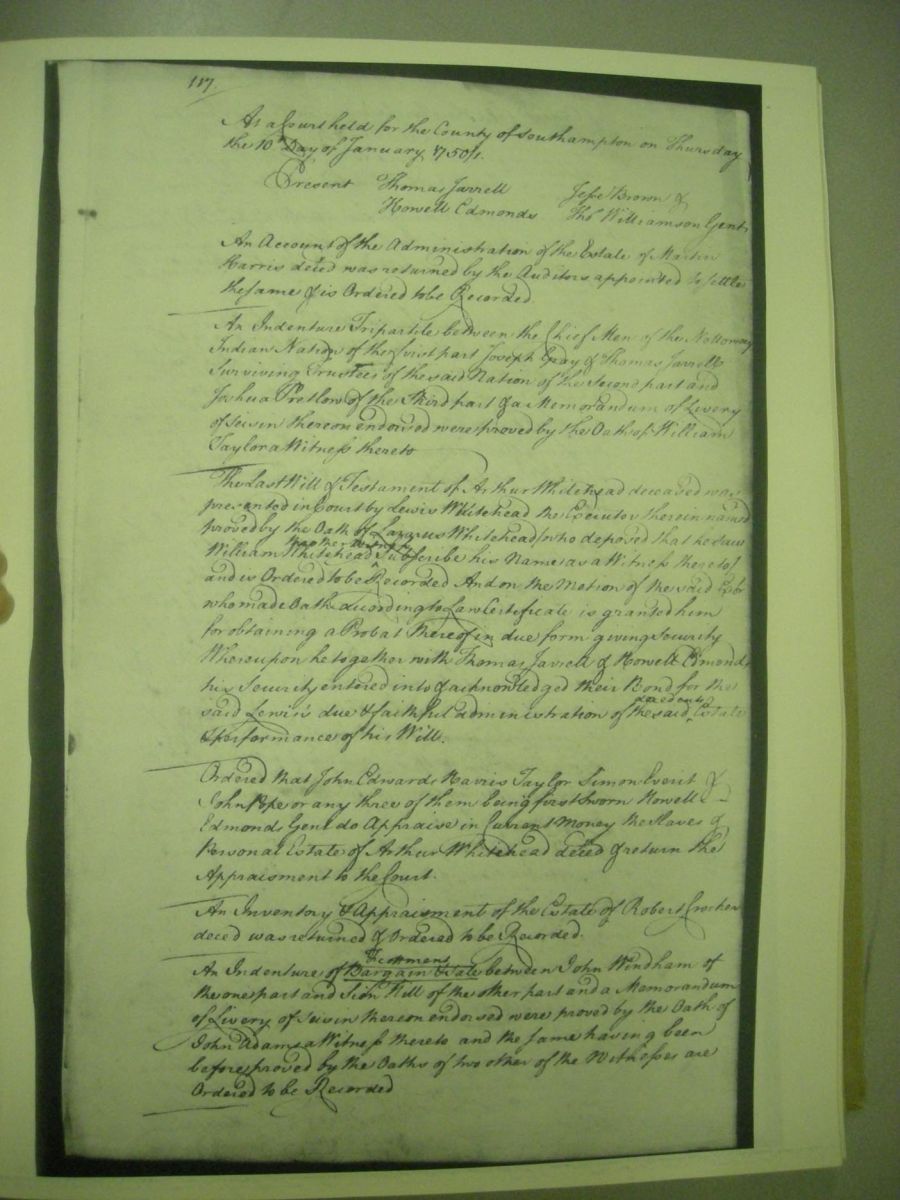 117.
At a Court held for the County of Southampton on Thursday
the 10th Day of January 1750/1.
Present Thomas Jarrell Jesse Brown &
Howell Edmonds Tho Williamson Gent
An Account of the Administration of the Estate of Martin
Harris deced was returned by the Auditors appointed to settle
the same & is Ordered to be Recorded
An Indenture Tripartite between the Chief Men of the Nottoway
Indian Nation of the first part Joseph Gray & Thomas Jarrell
Surviving Trustees of the said Nation of the Second part and
Joshua Pretlow of the Third part & a Memorandum of Livery
of Seisin thereon endorsed were proved by the Oath of William
Taylor a Witness thereto
The Last Will & Testament of Arthur Whitehead deceased was
presented in Court by Lewis Whitehead the Executor therein named
proved by the Oath of Lazarus Whitehead who deposed that he saw
William Whitehead Subscribe his Name as a Witness thereto
and is Ordered to be Recorded And on the Motion of the said Exor
who made Oath according to Law Certificate is granted him
for obtaining a Probat thereof in due form giving Security
Whereupon he together with Thomas Jarrell & Howell Edmonds
his Security entered into & acknowledged their Bond for the
said Lewis's due & faithful administration of the said decedents Estate
& performance of his Will.
Ordered that John Edwards Harris Taylor Simon Everit &
John Pope or any three of them being first Sworn Howell
Edmonds Gent do Appraise in Current Money the Slaves &
Personal Estate of Arthur Whitehead deced & return the
Appraisment to the Court.
An Inventory & Appraisment of the Estate of Robert Crocker
deced was returned & Ordered to be Recorded.
Feoffment
An Indenture of Bargain & Sale between John Windham of
the one part and Sion Hill of the other part and a Memorandum
of Livery of Seisin thereon endorsed were proved by the Oath of
John Adams a Witness thereto and the same having been
before proved by the Oaths of two other of the Witnesses are
Ordered to be Recorded